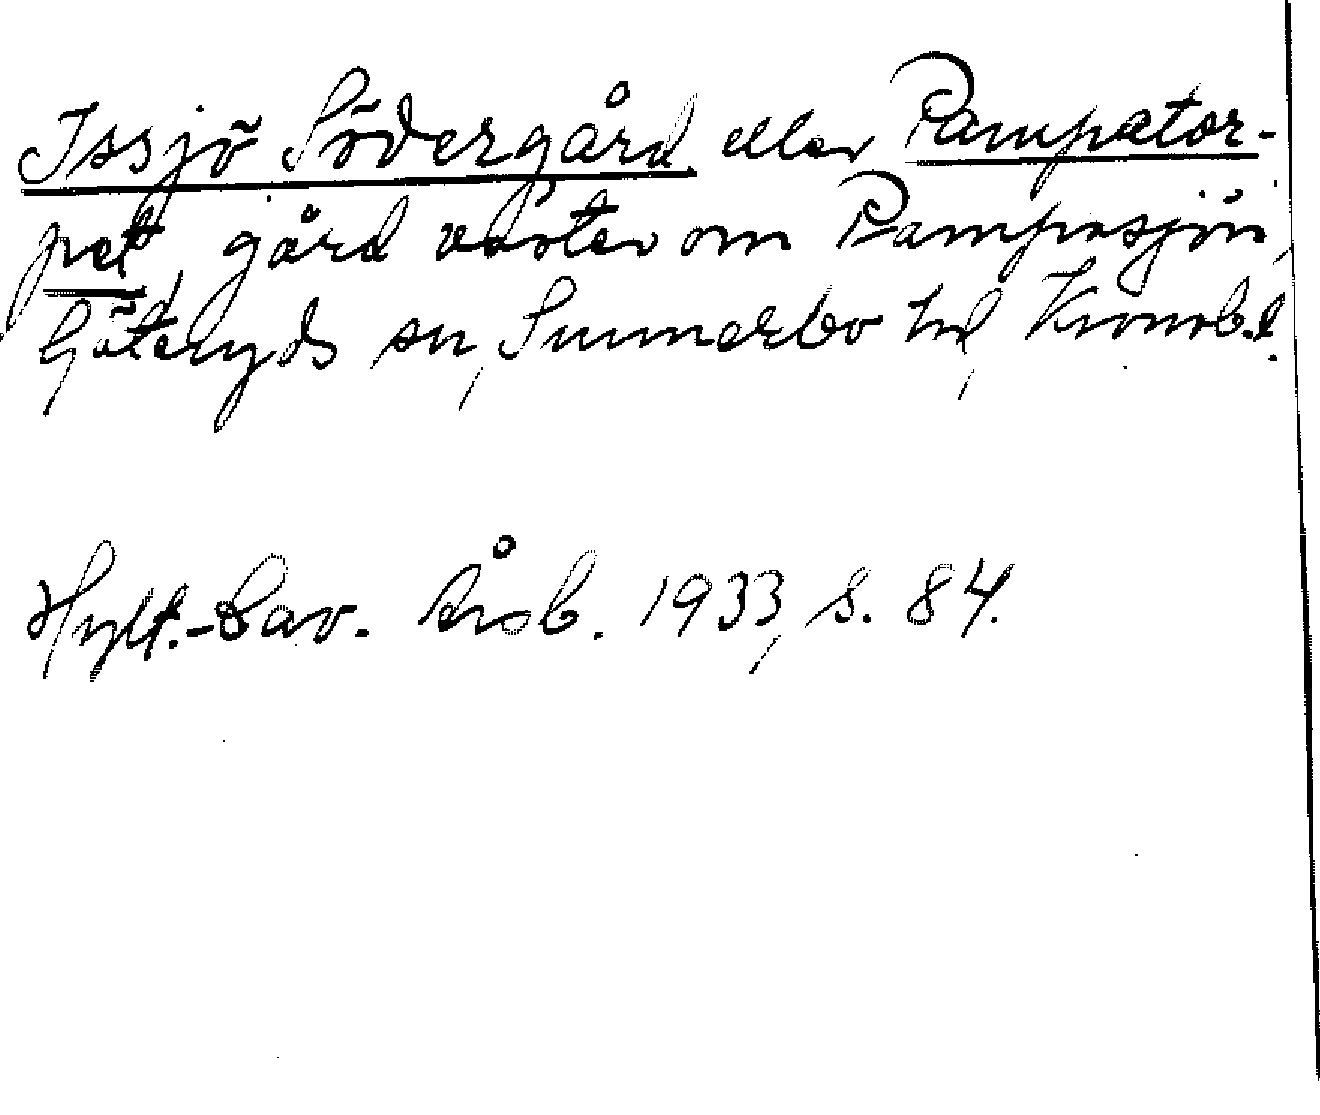 Issjö Södergård eller Rampator-
pet, gård väster om Rampasjön,
Göteryds sn, Sunnerbo hd, Kronob. l.
Hylt.-Cav. Årsb. 1933, s. 84.